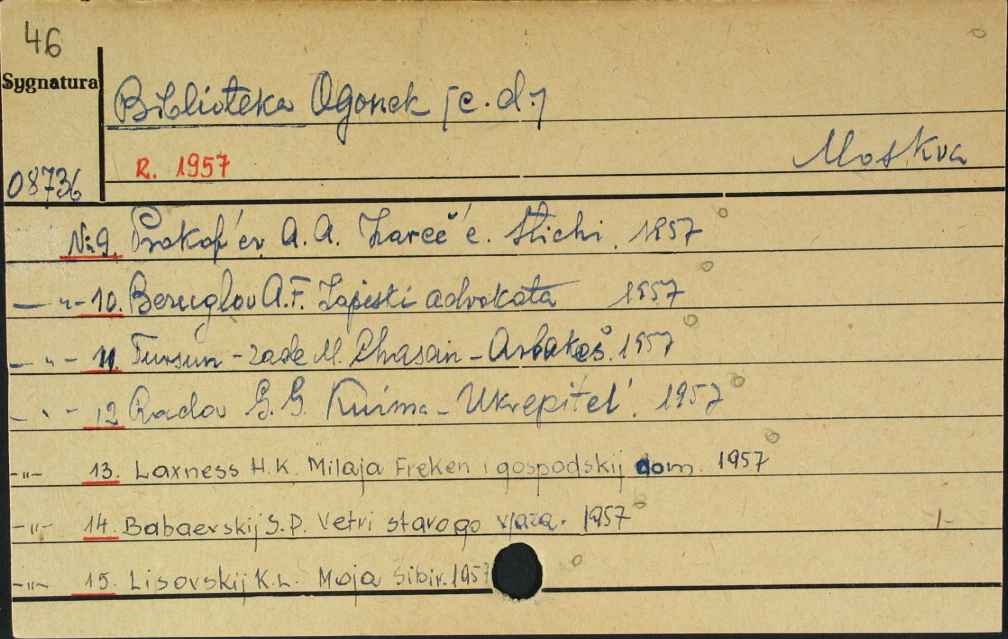 46
Sygnatura
Biblioteka Ogonek [c.d.]
R. 1957
Moskva
08736
Nr 9. Prokof'ev A. A. Zareč'e. Stichi. 1957
-"- 10. Bezuglov A.F. Zapiski advokata 1957
-"- 11. Tursun-zade M. Chasan-Arbakeš. 1957
-"- 12 Radov G.G. Kuźma-Ukrepitel'. 1957
-"- 13. Laxness H.K. Milaja Freken i gospodskij dom. 1957
-"- 14. Babaevskij S.P. Vetvi starogo 1957
-"- 15. Lisovskij K.L. Moja Sibir. 1957